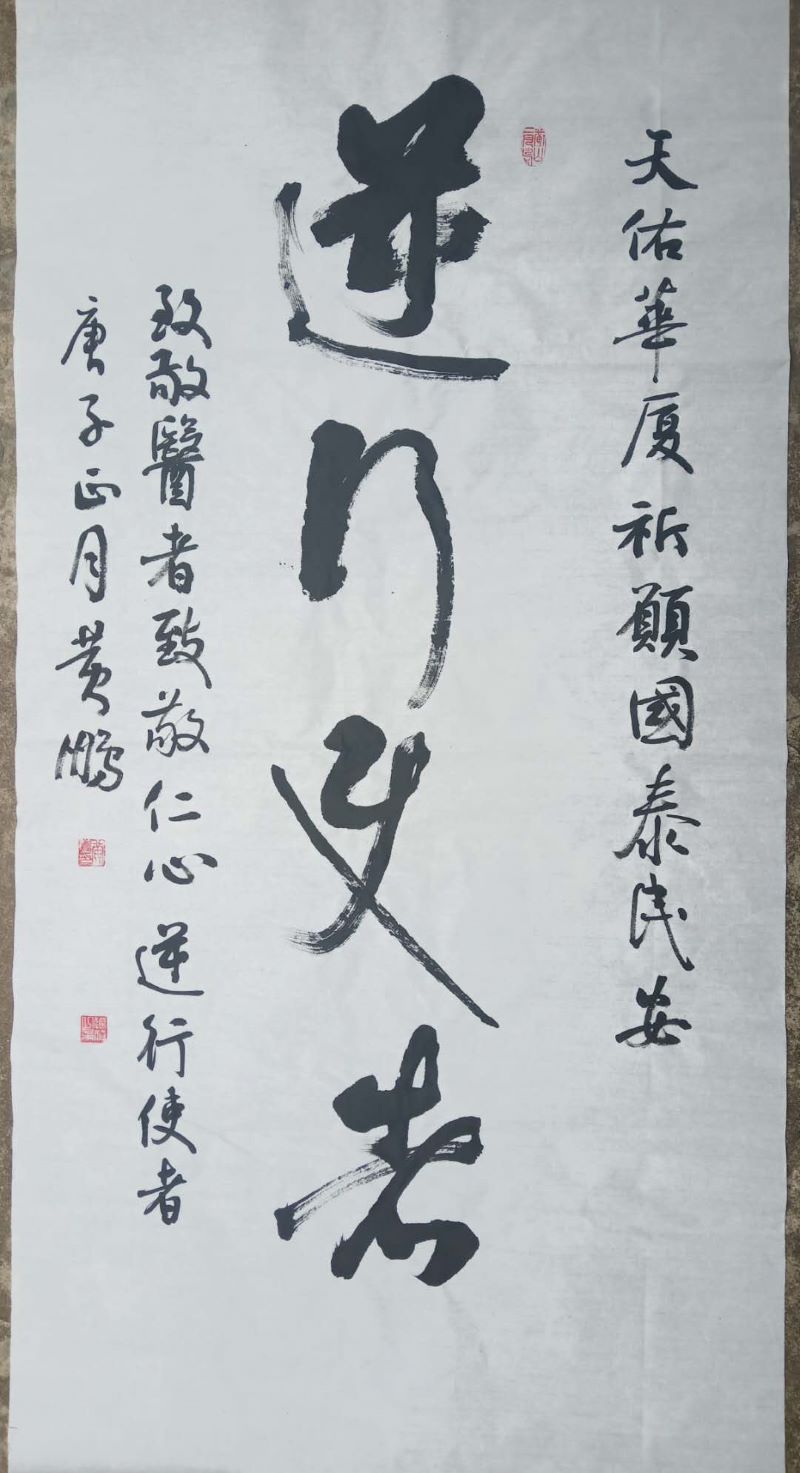 天佑華厦祈願國泰民安
逆行使者
致敬醫者致敬仁心逆行使者
庚子正月黄鵬